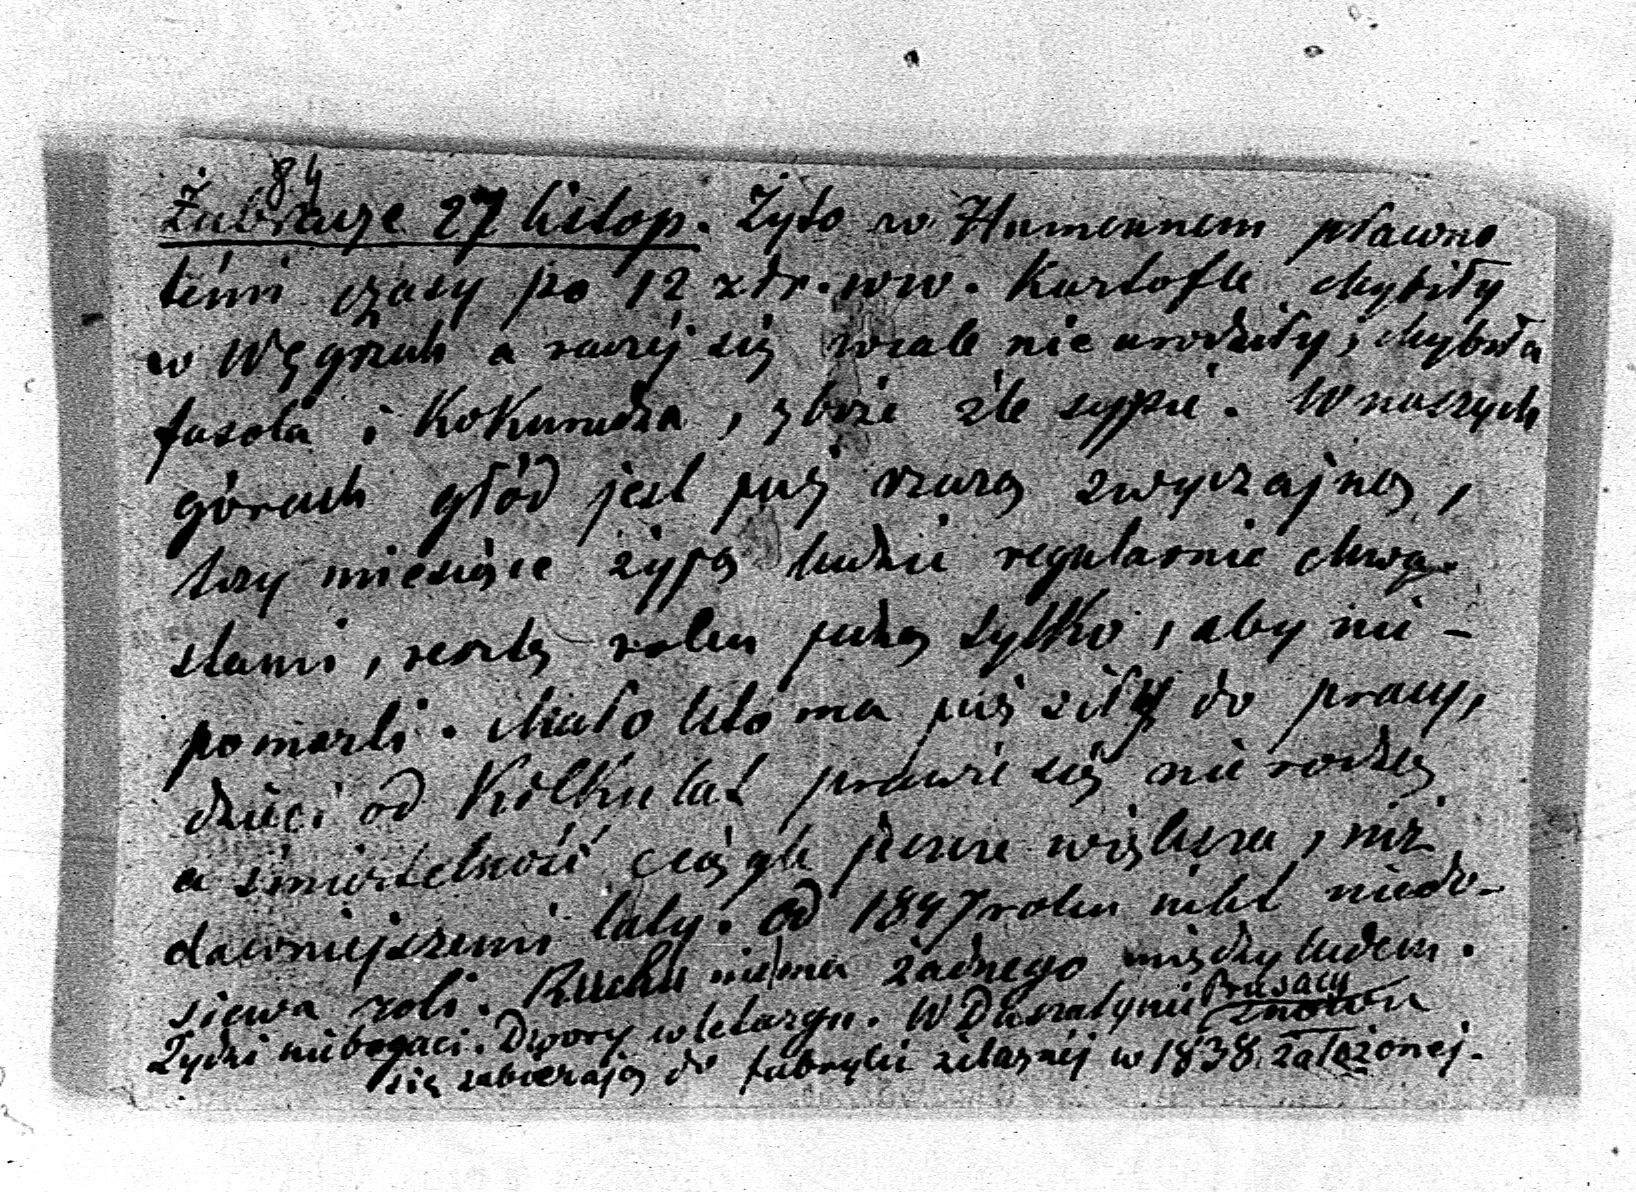 84
Żubracze 27 listop. Żyto w Humennem płacono
témi czasy po 12 złr. ww. Kartofle chybiły
w Węgrzech a raczéj się wcale nie urodziły, chybiła
fasola i Kokurudza, zboże źle sypie. W naszych
górach głód jest już rzeczą zwyczajną,
trzy miesiące żyją ludzie regularnie chwa-
stami, resztę roku jedzą tylko, aby nie-
pomarli. Mało kto ma już siły do pracy,
dzieci od Kilku lat prawie się nie rodzą
a śmiertelność ciągle jeszcze większa, niż
dawniejszemi laty. Od 1847 roku nikt niedo-
siewa roli. Ruchu niema żadnego między ludem.
Żydzi niebogaci. Dwory w letargu. W Duszatynie Prusacy znowu
się zabierają do fabryki żelaznéj w 1838 założonej.